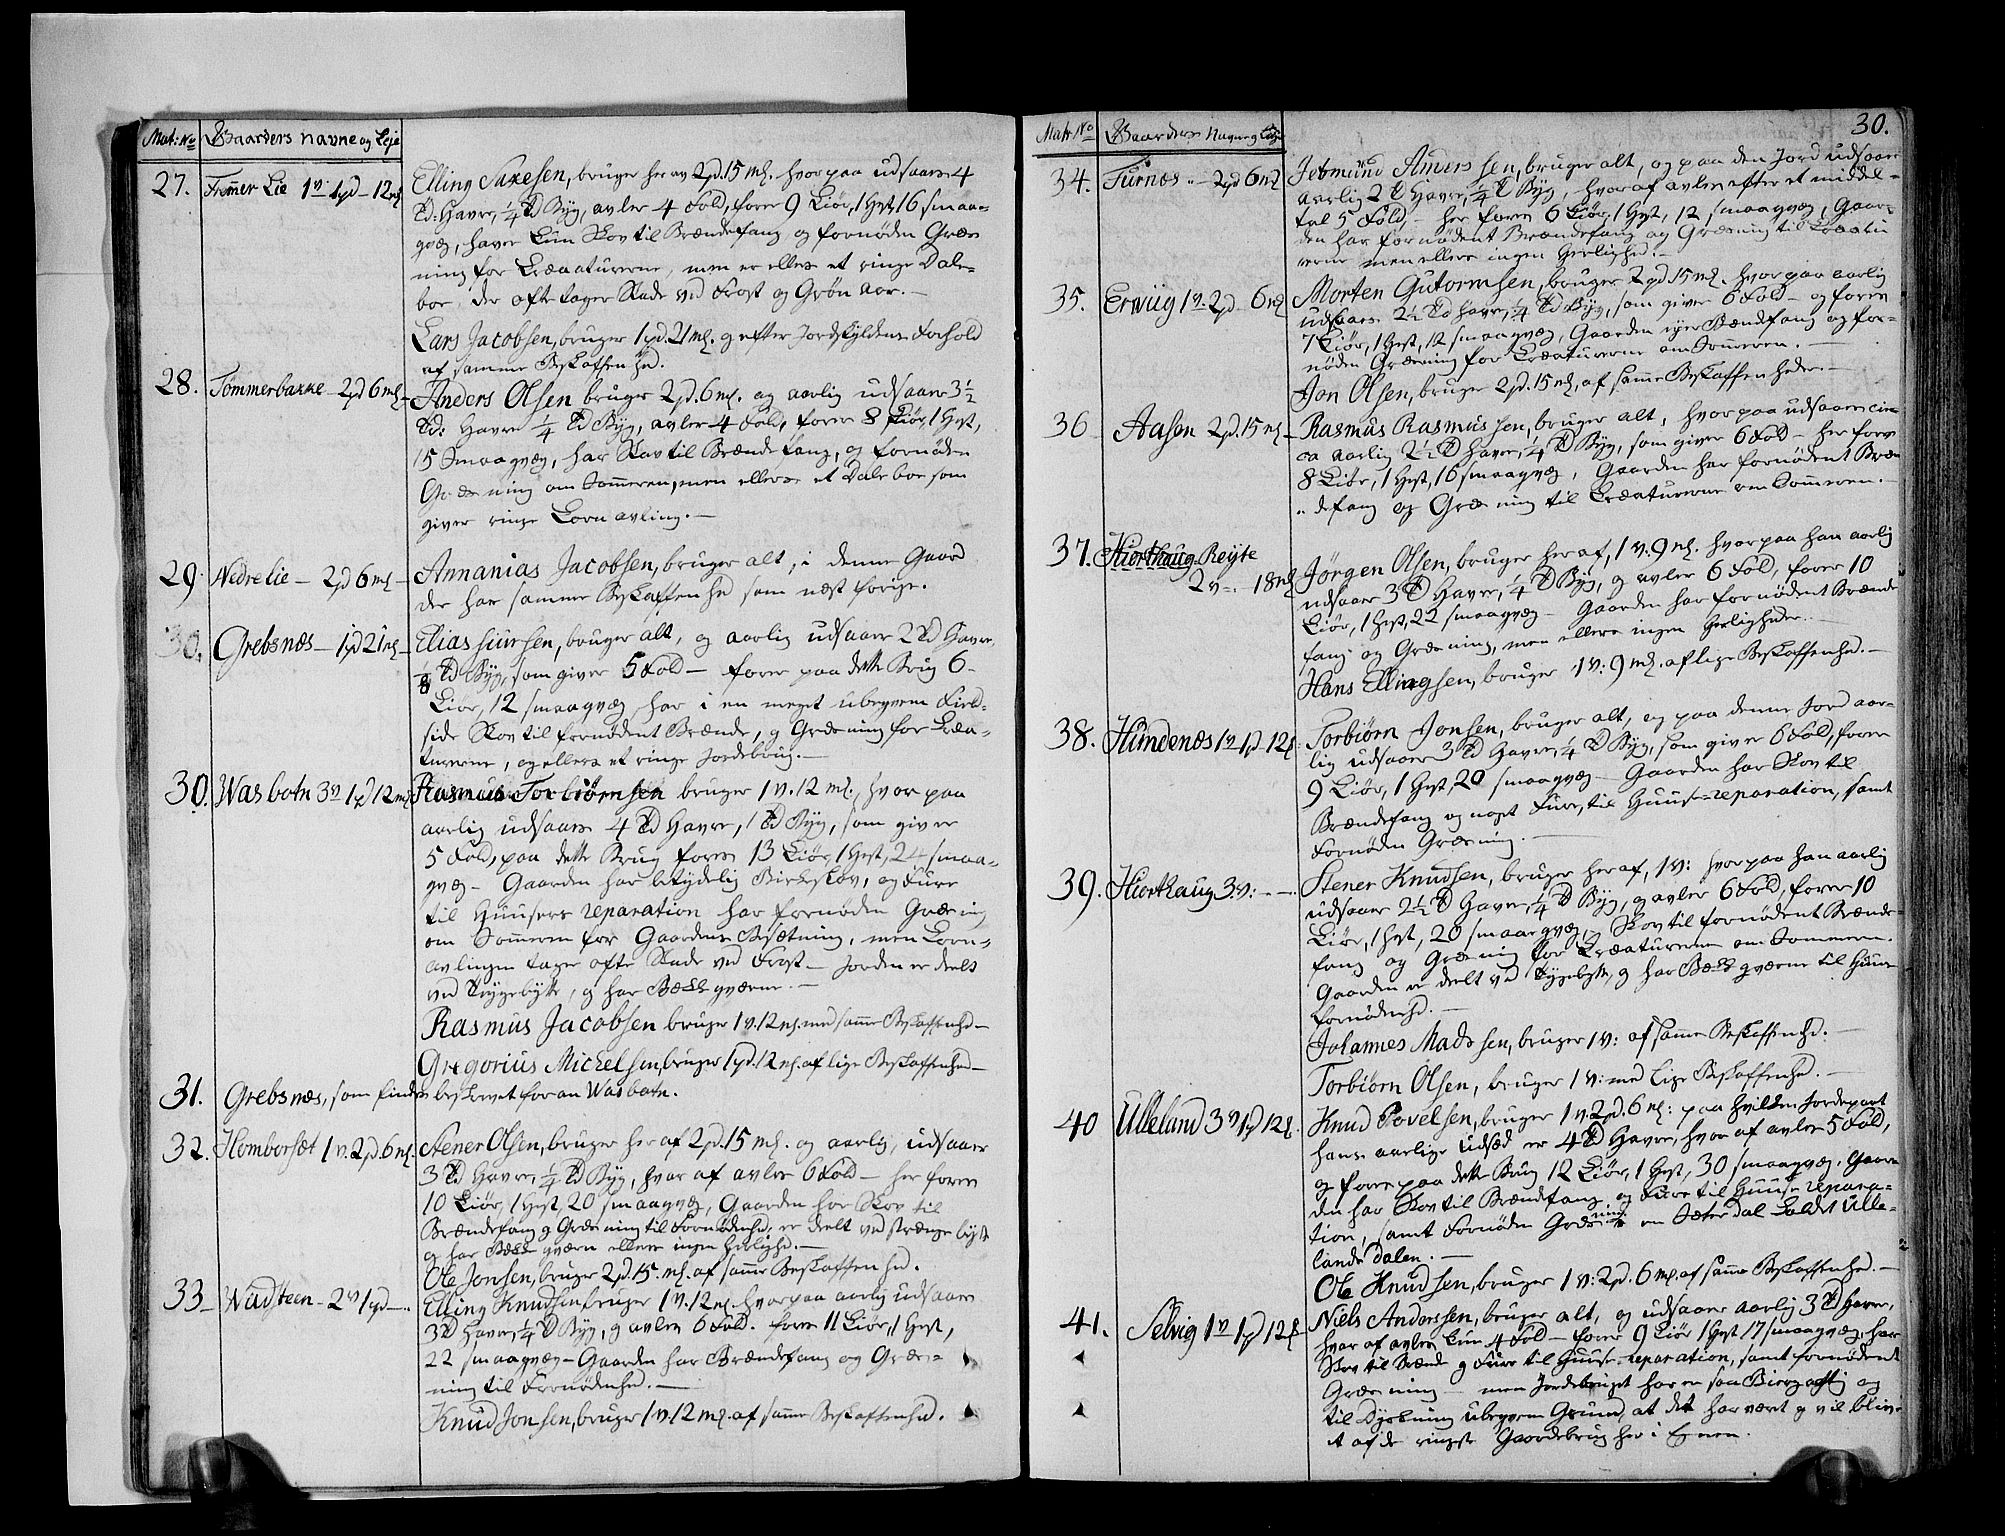 Matr: No Gaarders navne og Leje
27. Fremer Lie 1 v: 1 pd – 12 mk
Elling Saxesen, bruger her av 2 pd. 15 mk. hvorpaa udsaaes 4
Td: Havre, 1/4 Td Byg, avler 4 Fold, foder 9 Kiør, 1 Hest, 16 smaa-
qvæg, haver kun Skov til Brændefang og fornøden Græs
ning for Creaturerne, men er ellers et ringe Dale-
boe, der ofte tager Skade ved Frost og Grøn Aar. –
Lars Jacobsen, bruger 1 pd. 21 mk. og efter Jordskyldens Forhold
af samme Beskaffenhed.
28. Tømmerbakke – 2 pd 6 mk –
Anders Olsen bruger 2 pd. 6 mk. og aarlig udsaaer 3 1/2
Td: Havre 1/4 Td Byg, avler 4 Fold, foder 8 Kiør, 1 Hest,
15 Smaaqvæg, har Skov til Brændefang, og fornøden
Græsning om Sommeren, men ellers et Daleboe som
giver ringe Kornavling. –
29. Nedre Lie – 2 pd 6 mk –
Annanias Jacobsen, bruger alt, i denne Gaard
der har samme Beskaffenhed som næst forige.
30. Grebsnæs – 1 pd 21 mk –
Elias Siursen, bruger alt, og aarlig udsaaer 2 Td Havre
1/8 Td Byg, som giver 5 Fold – foder paa dette Brug 6
Kiør, 12 smaaqvæg har i en meget ubeqvem Field-
side Skov til fornødent Brænde, og Græsning for Crea-
turerne, og ellers et ringe Jordebrug. –
30. Wasbotn 3 v 1 pd 12 mk
Rasmus Torbiørnsen bruger 1 v. 12 mk., hvor paa
aarlig udsaaes 4 Td Havre, 1 Td Byg, som giver
5 Fold, paa dette Brug fores 13 Kiør, 1 Hest, 24 smaa-
qvæg – Gaarden har betydelig Birkeskov, og Furre
til Huusets reparation har fornøden Græsning
om Sommeren for Gaardens Besætning, men Korn-
avlingen tager ofte Skade ved Frost – Jorden er deelt
ved Teygebytte, og har Bekkeqværne. –
Rasmus Jacobsen bruger 1 v. 12 mk. med samme Beskaffenhed –
Gregorius Michelsen, bruger 1 pd. 12 mk. af lige Beskaffenhed –
31. Grebsnæs, som findes beskrevet foran Wasbotn.
32. Homborsæt 1 v. 2 pd. 6 mk.
Stener Olsen, bruger her af 2 pd. 15 mk. og aarlig, udsaaer
3 Td Havre, 1/4 Td Byg, hvor af avler 6 Fold – her foder
10 Kiør, 1 Hest, 20 smaaqvæg, Gaarden har Skov til
Brændefang og Græsning til Fornødenhed, er deelt ved bytte
og har Bekkeqværn ellers ingen herlighed. –
Ole Jonsen, bruger 2 pd. 15 mk. af samme Beskaffenhed.
33 – Wadsteen – 2 v 1 pd –
Elling Knudsen bruger 1 v. 12 mk. hvorpaa aarlig udsaaes
3 Td Havre, 1/4 Td Byg, og avler 6 Fold. foder 11 Kiør, 1 Hest,
22 smaaqvæg – Gaarden har Brændefang og Græs-
ning til Fornødenhed. –
Knud Jonsen, bruger 1 v. 12 mk. af samme Beskaffenhed.
30.
Matr: No Gaarders Navne og Leje
34. Furnæs – 2 pd 6 mk
Jetmund Anderssen, bruger alt, og paa den Jord udsaaer
aarlig 2 Td Havre, 1/4 Td Byg, hvor af avles efter et middel-
tal 5 Fold – her foder 6 Kiør, 1 Hest, 12 smaaqvæg, Gaar-
den har fornødent Brændefang og Græsning til Creatu
rerne men ellers ingen Herlighed. –
35. Erviig 1 v. 2 pd – 6 mk
Morten Gutormsen, bruger 2 pd. 15 mk. hvorpaa aarlig
udsaaes 2 1/2 Td Havre, 1/4 Td Byg, som giver 6 Fold – og foder
7 Kiør, 1 Hest, 12 smaaqvæg, Gaarden eyer Brændefang og for-
nøden Græsning for Creaturerne om Sommeren. –
Jon Olsen, bruger 2 pd. 15 mk, af samme Beskaffenhed. –
36 Aasen 2 pd. 15 mk –
Rasmus Rasmussen, bruger alt, hvorpaa udsaaes cir-
ca aarlig 2 1/2 Td Havre, 1/4 Td Byg, som giver 6 Fold – her foder
8 Kiør, 1 Hest, 16 smaaqvæg, Gaarden har fornødent Bræn
defang og Græsning til Creaturerne om Sommeren. –
37. Hiorthaug Reyte
2 v – 18 mk
Jørgen Olsen, bruger her af, 1 v. 9 mk. hvorpaa han aarlig
udsaaer 3 Td Havre, 1/4 Td Byg, og avler 6 Fold, foder 10
Kiør, 1 Hest, 22 smaaqvæg – Gaarden har fornødent Brænde
fang og Græsning, men ellers ingen Herligheder. –
Hans Ellingsen, bruger 1 v: 9 mk. af lige Beskaffenhed. –
38. Hundenæs 1 v 1 pd 12 mk
Torbiørn Jonsen, bruger alt, og paa denne Jord aar-
lig udsaaer 3 Td Havre, 1/4 Td Byg, som giver 6 Fold, foder
9 Kiør, 1 Hest, 20 smaaqvæg – Gaarden har Skov til
Brændefang og noget Furre, til Huuse-reparation, samt
Fornøden Græsning. –
39. Hiorthaug 3 v: –
Stener Knudsen, bruger her af, 1 v: hvorpaa han aarlig
udsaaer 2 1/2 Td Havre, 1/4 Td Byg, og avler 6 Fold, foder 10
Kiør, 1 Hest, 20 smaaqvæg, Skov til fornødent Brænde-
fang og Græsning for Creaturerne om Sommeren.
Gaarden er deelt ved Teygebytte, og har Bekkeqværne til Huus
fornødenhed. –
Johannes Madssen, bruger 1 v: af samme Beskaffenhed. –
Torbiørn Olsen, bruger 1 v: med lige Beskaffenhed. –
40 Ulleland 3 v 1 pd 12 mk
Knud Povelsen, bruger 1 v. 2 pd. 6 mk: paa hvilken Jordepart
hans aarlige udsæd er 4 Td Havre, hvor af avles 5 Fold,
og fores paa dette Brug 12 Kiør, 1 Hest, 30 smaaqvæg. Gaar
den har Skov til Brændefang og Furre til Huuse repara-
tion, samt Fornøden Græsning en Sæterdal kaldet Ulle-
lands dalen. –
Ole Knudsen, bruger 1 v: 2 pd. 6 mk. af samme Beskaffenhed. –
41. Selvig 1 v 1 pd 12 mk
Niels Anderssen, bruger alt, og udsaaer aarlig 3 Td Havre,
hvor af avles kun 4 Fold – foder 9 Kiør 1 Hest 17 smaaqvæg, har
Skov til Brænde og Furre til Huuse-reparation, samt fornødent
Græsning – men Jordebruget har er saa Biergagtig og
til Dyrkning ubeqvem Grund, at det har vært og vil bliv
e et af de ringeste Gaardebrug her i Egnen.